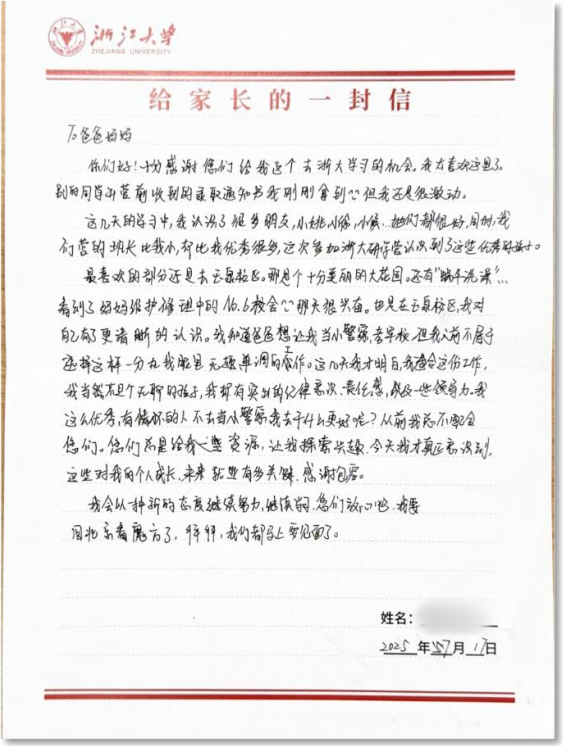 浙江大学
ZHEJIANG UNIVERSITY
给家长的一封信
To 爸爸妈妈
你们好！十分感谢您们给我这个去浙大学习的机会。我太喜欢这里了。
别的同学开营前收到的录取通知书我刚刚拿到^^但我还是很激动。
这几天的学习中，我认识了很多朋友，小姚，小徐，小侯，她们都很好，同时，我
们营的班长比我小，却比我优秀很多，这次参加浙大研学营认识到了这些优秀的
最喜欢的部分还是去玉泉校区。那是个十分美丽的大花园。还有“蜗牛洗澡”…
看到了妈妈维护修理中的No.6校舍^^那天很兴奋。也是在玉泉校区，我对
自己有了更清晰的认识。我知道爸爸想让我当小警察，考警校，但我从前不屑于
选择这样一份在我眼里无趣单调的工作。这几天我才明白，我适合这份工作，
我当然不是个无聊的孩子，我却有实到的纪律意识、责任感，以及一些领导力。我
这么优秀，有情怀的人不去当小警察我去干什么更好呢？从前我总不配合
您们。您们总是给我一些资源，让我探索兴趣，今天我才真正意识到，
这些对我的个人成长，未来就业有多关键，感谢包容。
我会以一种新的态度继续努力，继续学习，您们放心吧，我要
回北京看魔方了，拜拜，我们都马上要见面了。
姓名：
2025 年 7 月 17 日